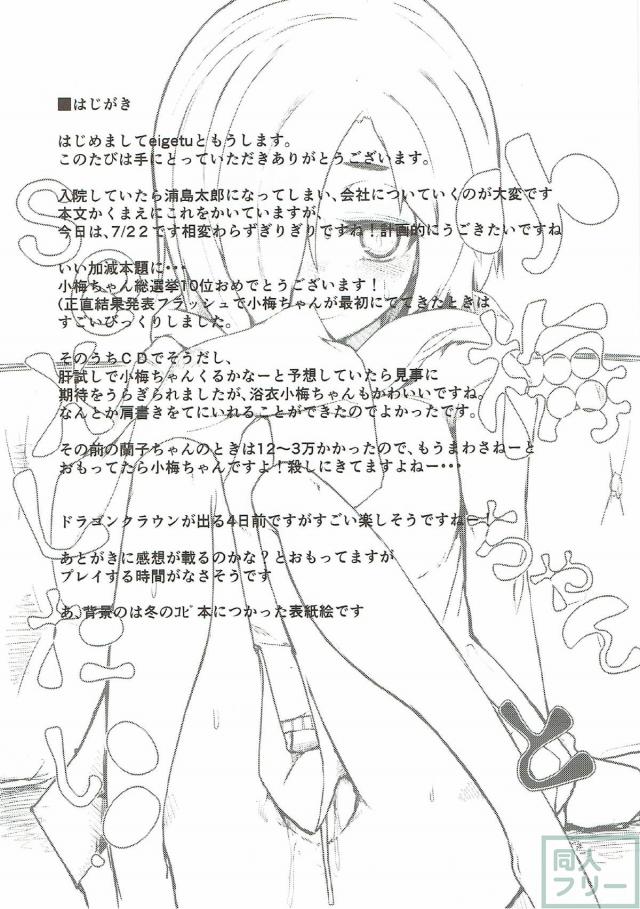 ■はじがき
はじめましてeigetuともうします。
このたびは手にとっていただきありがとうございます。
入院していたら浦島太郎になってしまい、会社についていくのが大変です
本文かくまえにこれをかいていますが、
今日は、7/22です相変わらずぎりぎりですね！計画的にうごきたいですね
いい加減本題に・・・
小梅ちゃん総選挙10位おめでとうございます！
(正直結果発表フラッシュで小梅ちゃんが最初にでてきたときは
すごいびっくりしました。
そのうちCDでそうだし、
肝試しで小梅ちゃんくるかなーと予想していたら見事に
期待をうらぎられましたが、浴衣小梅ちゃんもかわいいですね。
なんとか肩書きをてにいれることができたのでよかったです。
その前の蘭子ちゃんのときは12～3万かかったので、もうまわさねーと
おもってたら小梅ちゃんですよ！殺しにきてますよねー・・・
ドラゴンクラウンが出る4日前ですがすごい楽しそうですねー！
あとがきに感想が載るのかな？とおもってますが
プレイする時間がなさそうです
あ、背景のは冬のｺﾋﾟ本につかった表紙絵です
ちゃん
と
同人
フリー